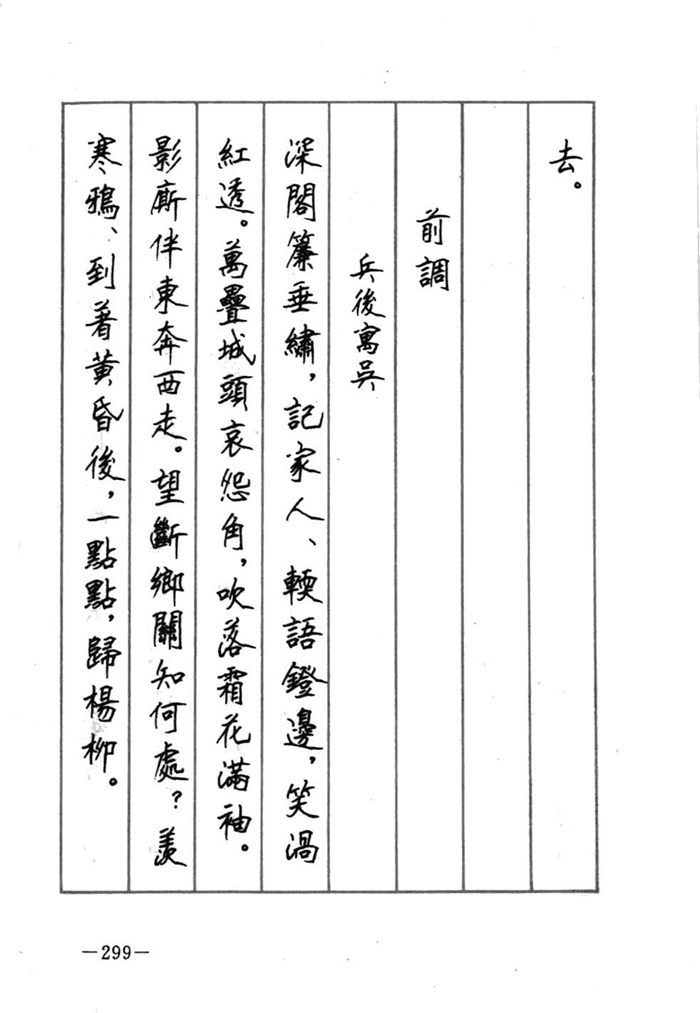 去。
前調
兵後寓吳
深閣簾垂繡，記家人、輭語鐙邊，笑渦
紅透。萬疊城頭哀怨角，吹落霜花滿袖。
影廝伴東奔西走。望斷鄉關知何處？羨
寒鴉、到著黃昏後，一點點，歸楊柳。
—299—